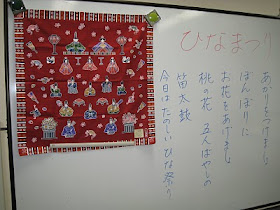 ひなまつり
あかりをつけましょう
ぼんぼりに
お花をあげましょ
桃の花 五人ばやしの
笛太鼓
今日はたのしいひな祭り